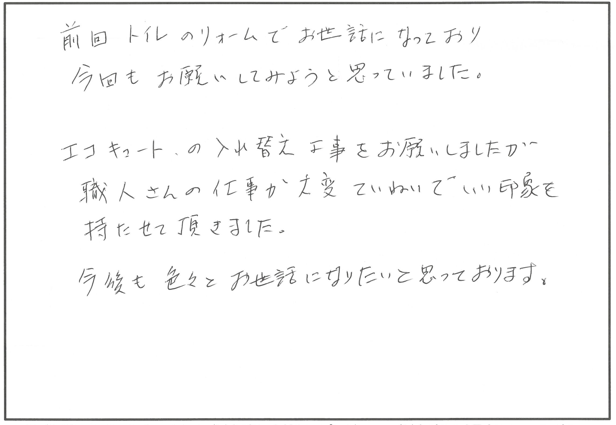 前回 トイレのリォームでお世話になっており
今回もお願いしてみようと思っていました。
エコキュートの入れ替え工事をお願いしましたが
職人さんの仕事が大変ていねいでいい印象を
持たせて頂きました。
今後も色々とお世話になりたいと思っております。